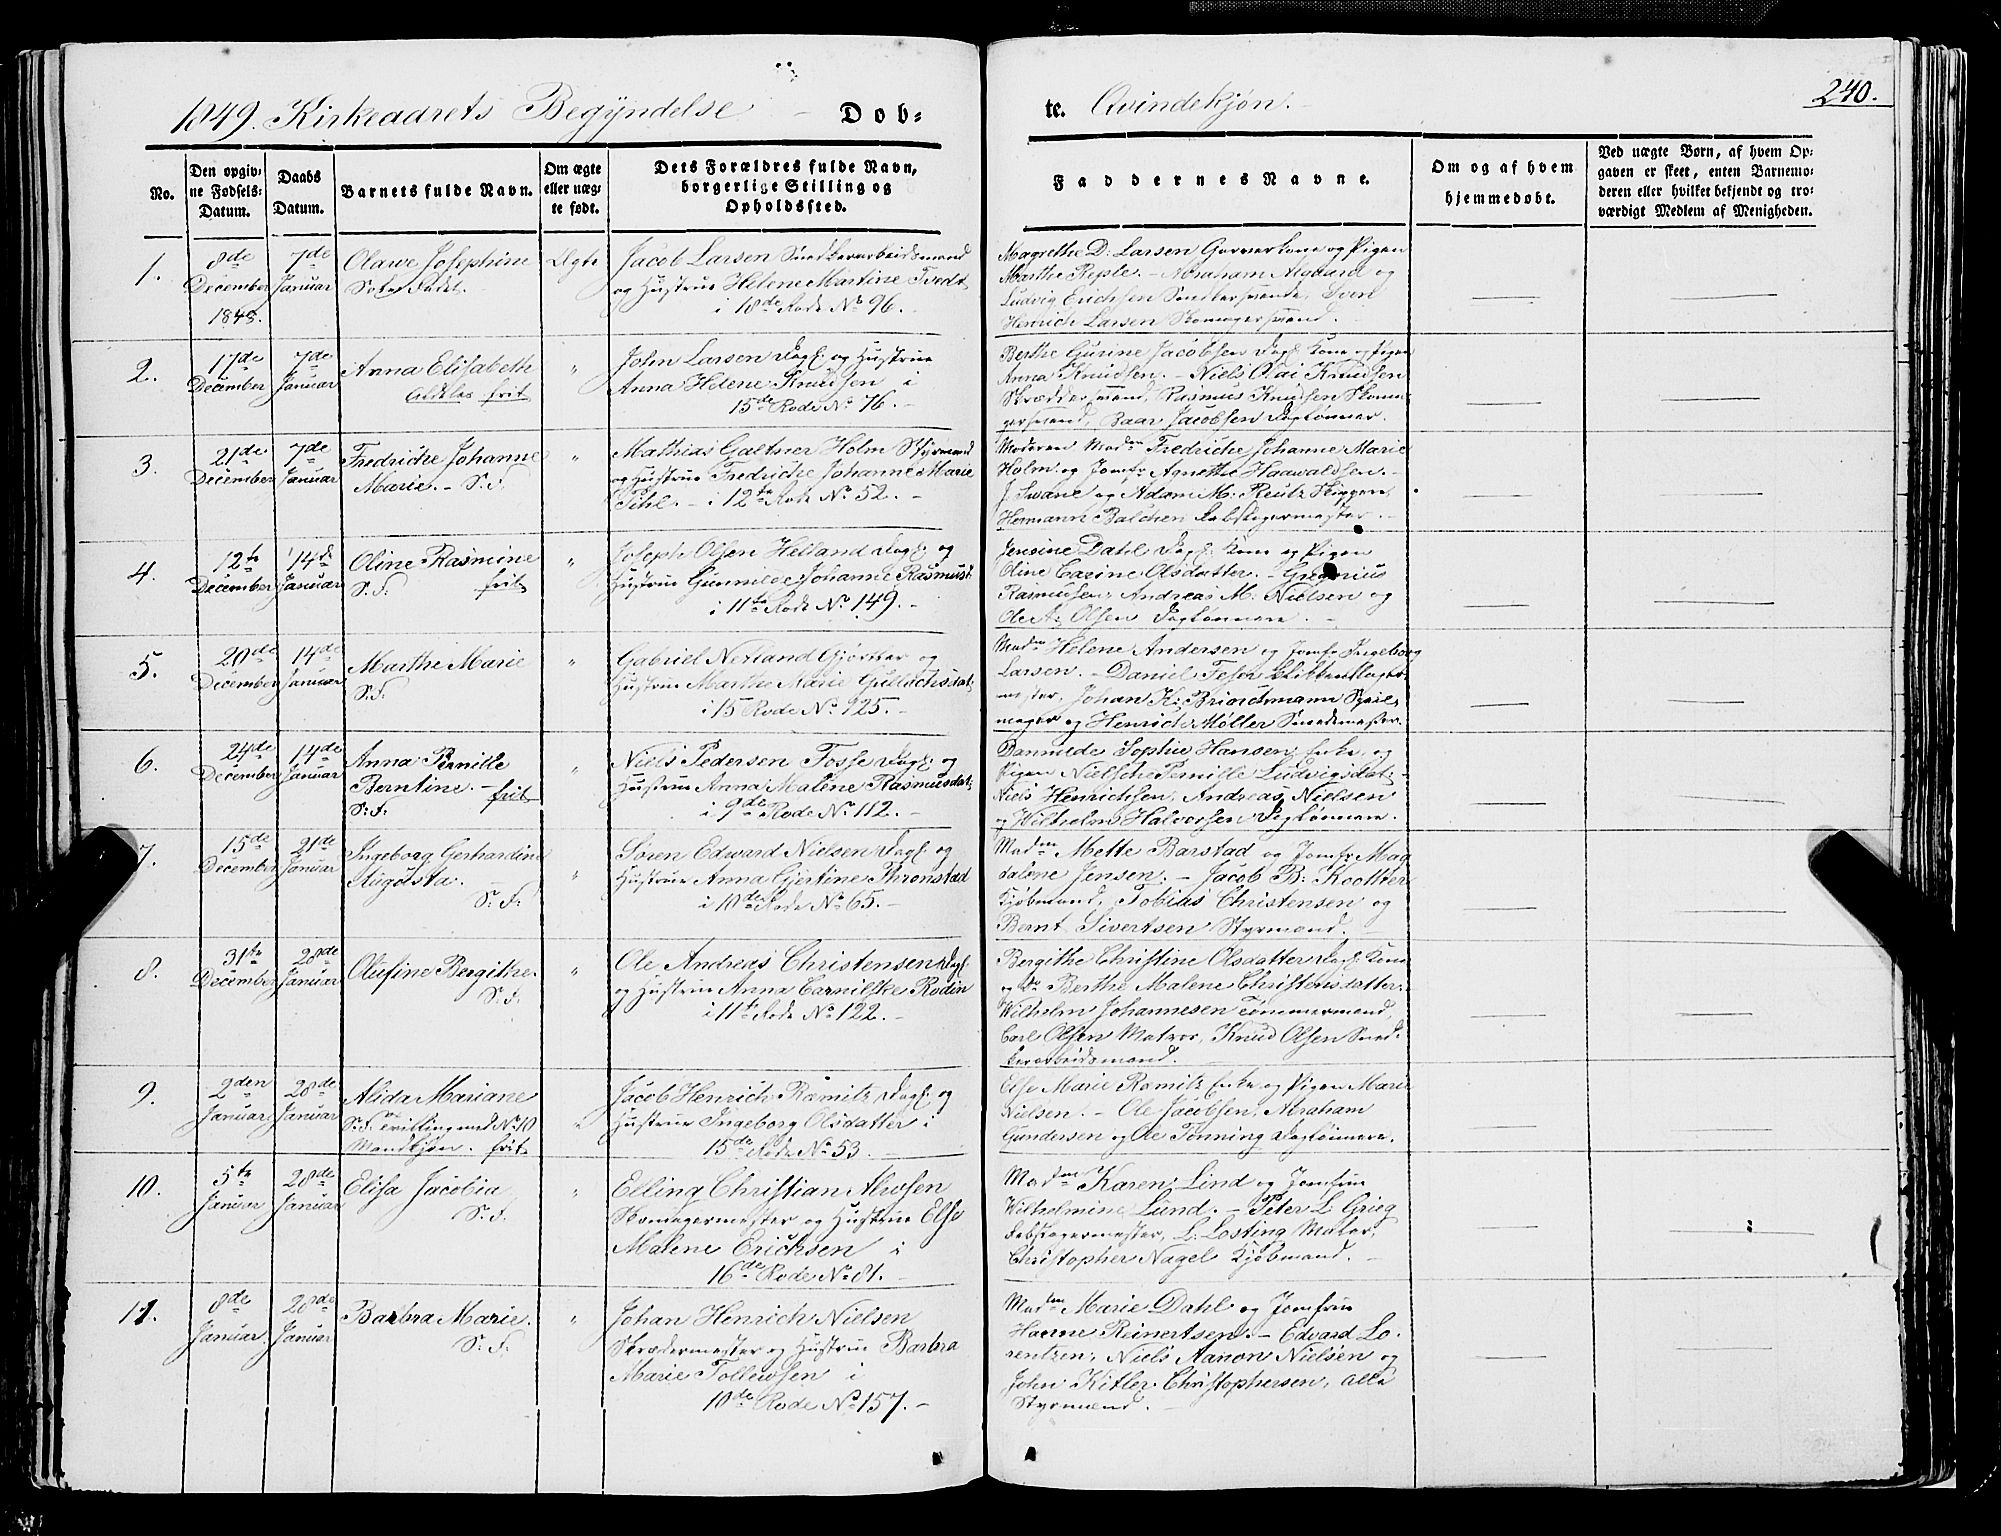 1849. Kirkeaarets Begyndelse – Døb-
te. Qvindekjøn.
240.
No.
Den opgiv-
ne Fødsels-
Datum.
Daabs
Datum.
Barnets fulde Navn.
Om ægte
eller uæg-
te født.
Dets Forældres fulde Navn,
borgerlige Stilling og
Opholdssted.
Faddernes Navne.
Om og af hvem
hjemmedøbt.
Ved uægte Børn, af hvem Op-
gaven er skeet, enten Barnemo-
deren eller hvilket bekjendt og tro-
værdigt Medlem af Menigheden.
1.
8de
December
1848.
7de
Januar
Olawe Josephine
Ægte
Jacob Larsen Snedkerarbeidsmand
og Hustrue Helene Martine Tvedt
i 18de Rode No 96.
Magrethe D. Larsen Garverkone og Pigen
Marthe Repsle. – Abraham Aagaard og
Ludvig Erichsen Snedkersvende, Svend
Henrich Larsen Skomagersvend.
2.
17de
December
7de
Januar
Anna Elisabeth
frit
"
John Larsen Dagl. og Hustrue
Anna Helene Knudsen i
15de Rode No 76. –
Berthe Gurine Jacobsen Dagl. Kone og Pigen
Anna Knudsen. – Niels Olai Knudsen
Skræddersvend, Rasmus Knudsen Skoma-
gersvend, Baar Jacobsen Daglønner.
3.
21de
December
7de
Januar
Fredriche Johanne
Marie. – S. F.
"
Mathias Galtsner Holm Styrmand
og Hustrue Fredriche Johanne Marie
Pihl. – i 12te Rode No 52. –
Moderen Madm Fredriche Johanne Marie
Holm og Jomfr Agnethe Haawaldsen. –
J. Swane og Adam M. Reutz Skippere,
Hermann Balchen Rebslagermester. –
4.
12te
December
14de
Januar
Oline Rasmine
S. F. frit
"
Joseph Olsen Helland Dagl. og
Hustrue Gunnilde Johanne Rasmusd
i 11te Rode No 149. –
Jensine Dahl Dagl. Kone og Pigen
Oline Carine Olsdatter. – Gregorius
Rasmusen, Andreas M. Nielsen og
Ole A. Olsen Daglønnere. –
5.
20de
December
14de
Januar
Marthe Marie
S. F.
"
Gabriel Netland Gjørtler og
Hustrue Marthe Marie Gullachsdat:
i 15 Rode No 125. –
Madm Helene Andersen og Jomfr Ingeborg
Larsen. – Daniel
mester, Johan K. Brinchmann
mager og Henrich Møller Smedemester.
6.
24de
December
14de
Januar
Anna Pernille
Berntine. – frit
S. F.
"
Niels Pedersen Fosse Dagl. og
Hustrue Anna Malene Rasmusdat:
i 9de Rode No 112. –
Danmilde Sophie Hansen Enke, og
Pigen Nielsche Pernille Ludvigsdat: –
Niels Henrichsen, Andreas Nielsen
og Wilhelm Halvorsen Daglønnere.
7.
15de
December
21de
Januar
Ingeborg Gerhardine
Augusta. –
S. F.
"
Søren Edward Nielsen Dagl. og
Hustrue Anna Gjertine Thronstad
i 10de Rode No 65. –
Madm Mette Barstad og Jomfr Mag-
dalene Jensen. – Jacob B.
Kjøbmand, Tobias Christensen og
Bernt Sivertsen Styrmænd. –
8.
31te
December
28de
Januar
Olufine Bergithe
S. F.
"
Ole Andreas Christensen Dagl.
og Hustrue Anna Carnilske Rodin
i 11te Rode No 122. –
Bergithe Christine Olsdatter Dagl. Kone
og Do Berthe Malene Christensdatter.
Wilhelm Johannesen Tømmermand,
Carl Olsen Matros, Knud Olsen Sned-
kerarbeidsmand.
9.
2den
Januar
28de
Januar
Alida Mariane
S. F. Tvilling med No 10
Mandkjøn. frit
"
Jacob Henrich Ræmitz Dagl. og
Hustrue Ingeborg Olsdatter i
15de Rode No 53. –
Else Marie Ræmitz Enke og Pigen Marie
Nielsen. – Ole Jacobsen, Abraham
Gundersen og Ole Tenning Daglønnere.
10.
5te
Januar
28de
Januar
Elisa Jacobia
S. F.
"
Elling Christian Alrosen
Skomagermester og Hustrue Else
Malene Erichsen i
16de Rode No 81. –
Madm Karen Lind og Jomfru
Wilhelmine Lund. – Peter L. Grieg
Rebslagermester, L. Losting Maler,
Christopher Nagel Kjøbmand. –
11.
8de
Januar.
28de
Januar
Barbra Marie.
S. F.
"
Johan Henrich Nielsen
Skrædermester og Hustrue Barbra
Marie Tollewsen i
10de Rode No 157. –
Madm Marie Dahl og Jomfru
Hanne Reinertsen. – Edvard Lo-
rentzen, Niels Aanon Nielsen og
John Kitler Christophersen, alle
Styrmænd. –